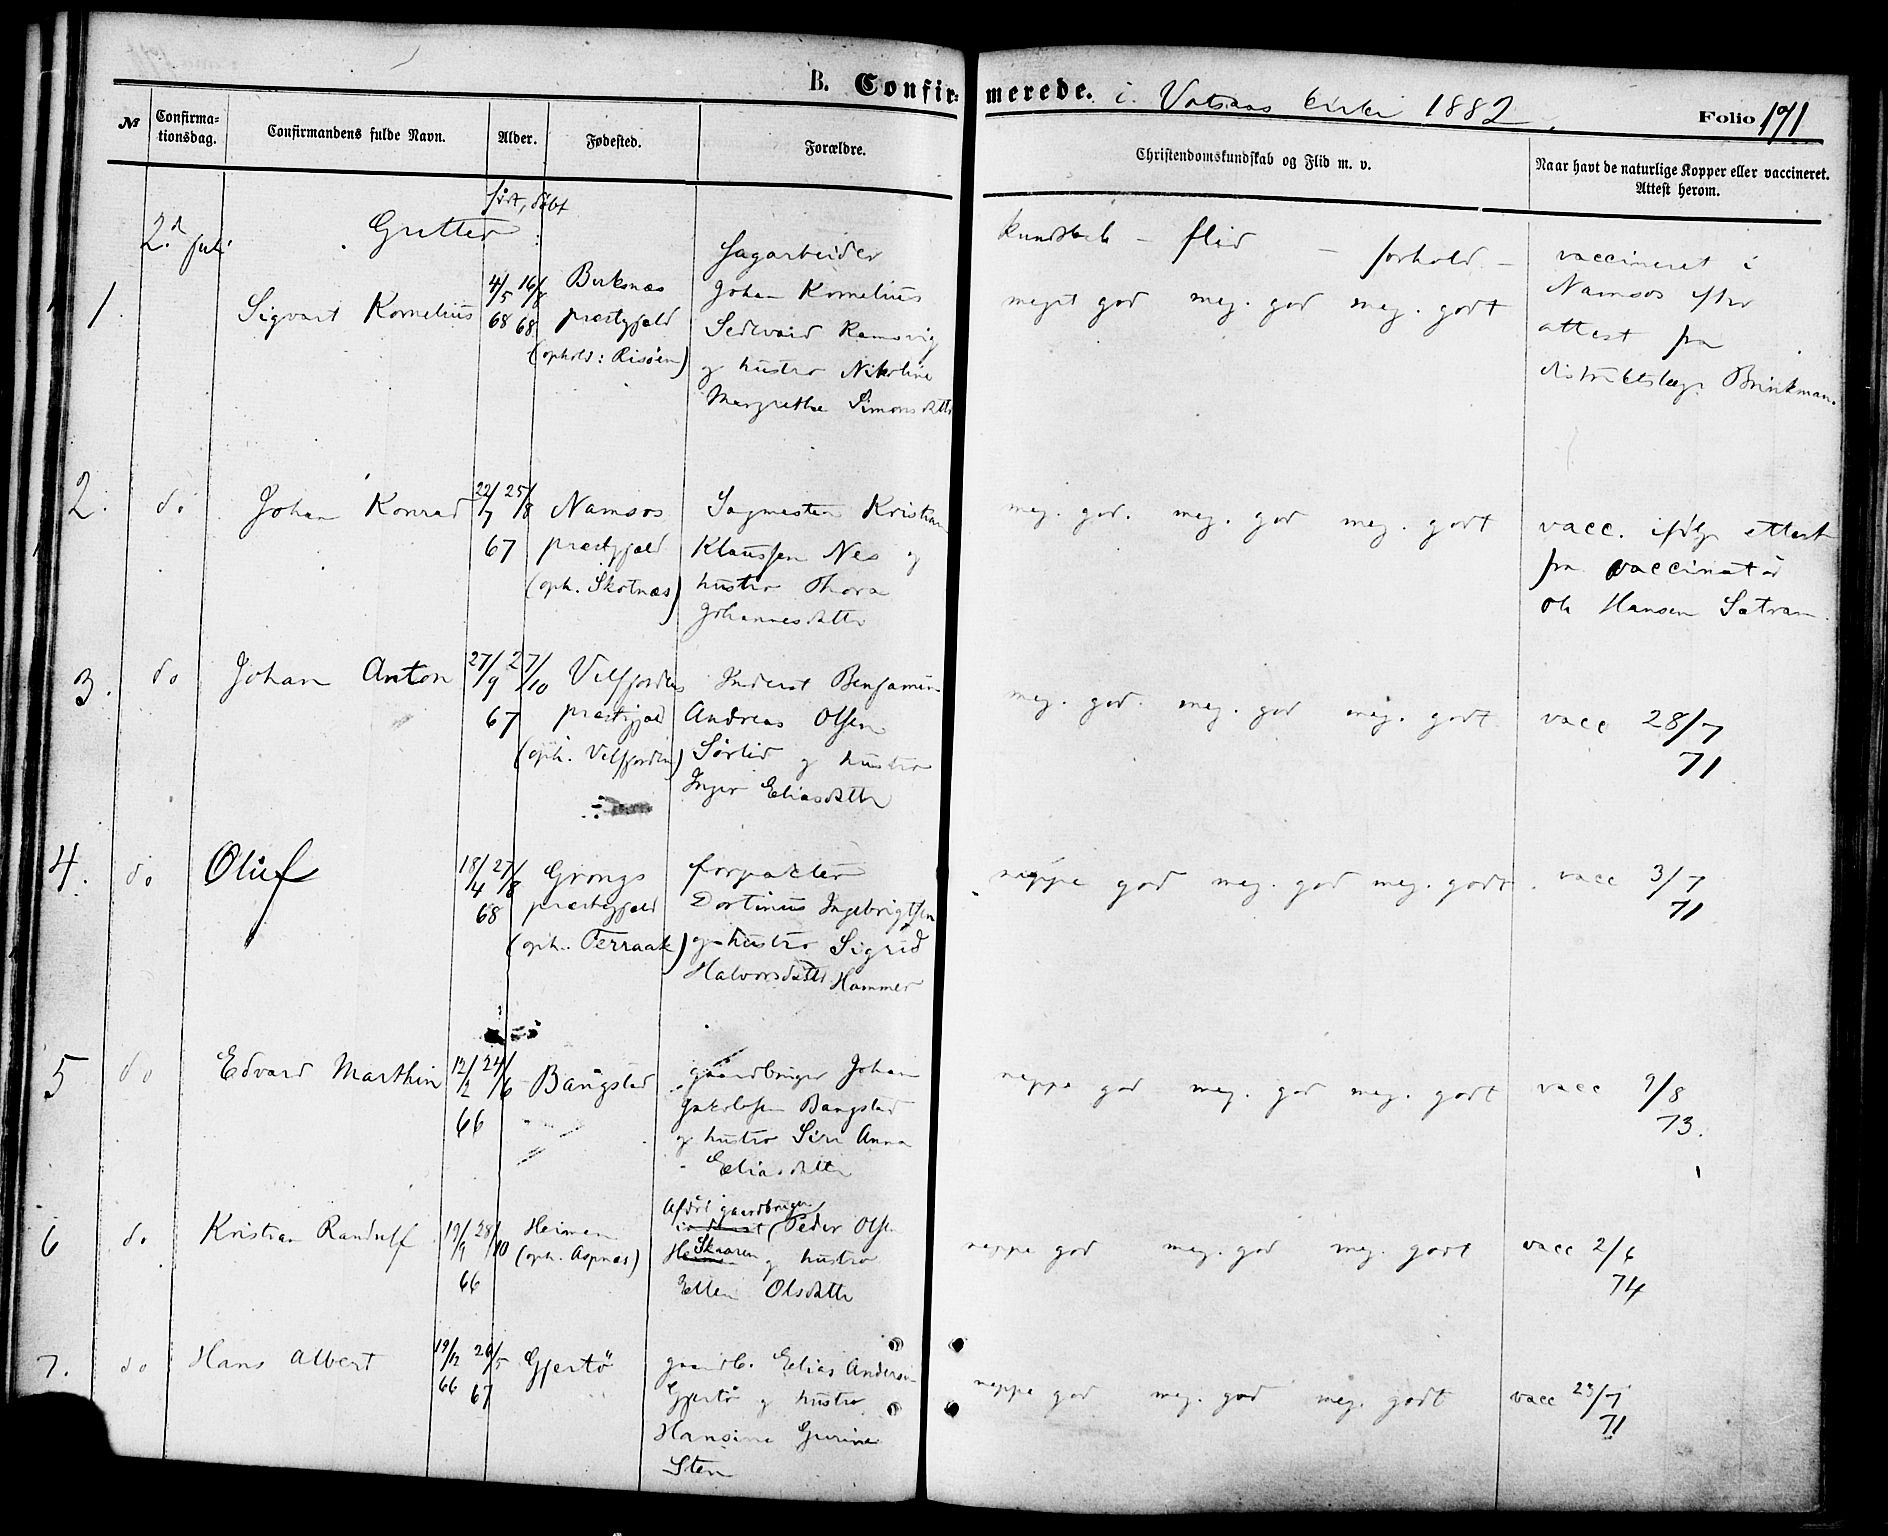 B. Confirmerede. i Vatsaas kirke 1882. Folio 191
№ Confirmationsdag. Confirmandens fulde Navn. Alder. Fødested. Forældre. Christendomskundskab og Flid m. v. Naar havt de naturlige Kopper eller vaccineret. Attest herom.
født, døbt
2d juli Gutter: kundskab – flid – forhold –
1. Sigvart Kornelius 4/5 68 16/8 68 Birknæs
præstegjeld
(ophold: Risøen)
Sagarbeider
Johan Kornelius
Sedevard Ramsvig
og hustro Nikoline
Margrethe Simonsdatter
meget god meg. god meg. godt
vaccineret i
Namsos efter
attest fra
distriktslæge Brinkman.
2. do Johan Konrad 22/7 25/8 67 Namsos
præstegjeld
(oph. Skotnæs)
Sagmester Kristian
Klaussen Nes og
hustro Thora
Johannesdatter
meg. god. meg. god meg. godt
vacc. ifølge attest
fra vaccinatør
Ole Hansen Sætran.
3. do Johan Anton 27/9 27/10 67 Velfjordens
præstegjeld
(oph. Velfjorden)
Inderst Benjamin
Andreas Olsen
Sørlid og hustro
Inger Eliasdatter
meg. god. meg. god meg. godt vacc 28/7
71
4. do Oluf 18/4 27/8 68 Grongs
præstegjeld
(oph. Terraak)
forpakter
Dortinius Ingebrigtsen
og hustro Sigrid
Halvorsdatter Hammer
neppe god meg. god meg. godt. vacc 3/7
71
5 do Edvard Marthin 12/2 24/6 66 Bangstad
gaardbruger Johan
Jakobsen Bangstad
og hustro Siri Anna
Eliasdatter
neppe god meg. god meg. godt vacc 9/8
73.
6 do Kristian Randulf 19/9 28/10 66 Heimen
(oph. Aspnæs)
Afdøde gaardbruger
inderst (Peder Olsen
Heimen Skaaren og hustro
Ellen Olsdatter
neppe god meg. god meg. godt vacc 2/6
74
7. do Hans Albert 19/12 66 26/5 67 Gjertø
gaardb. Elias Andersen
Gjertø og hustro
Hansine Gurine
Sten
neppe god meg. god meg. godt vacc 23/7
71